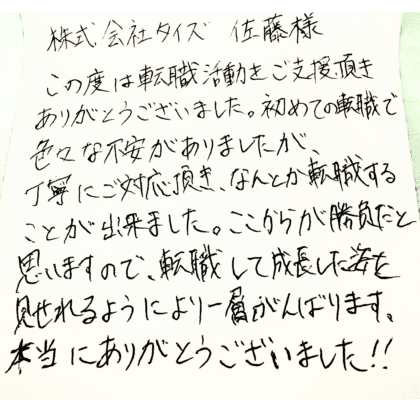 株式会社タイズ 佐藤様
この度は転職活動をご支援頂き
ありがとうございました。初めての転職で
色々な不安がありましたが、
丁寧にご対応頂き、なんとか転職する
ことが出来ました。ここからが勝負だと
思いますので、転職して成長した姿を
見せれるようにより一層がんばります。
本当にありがとうございました!!